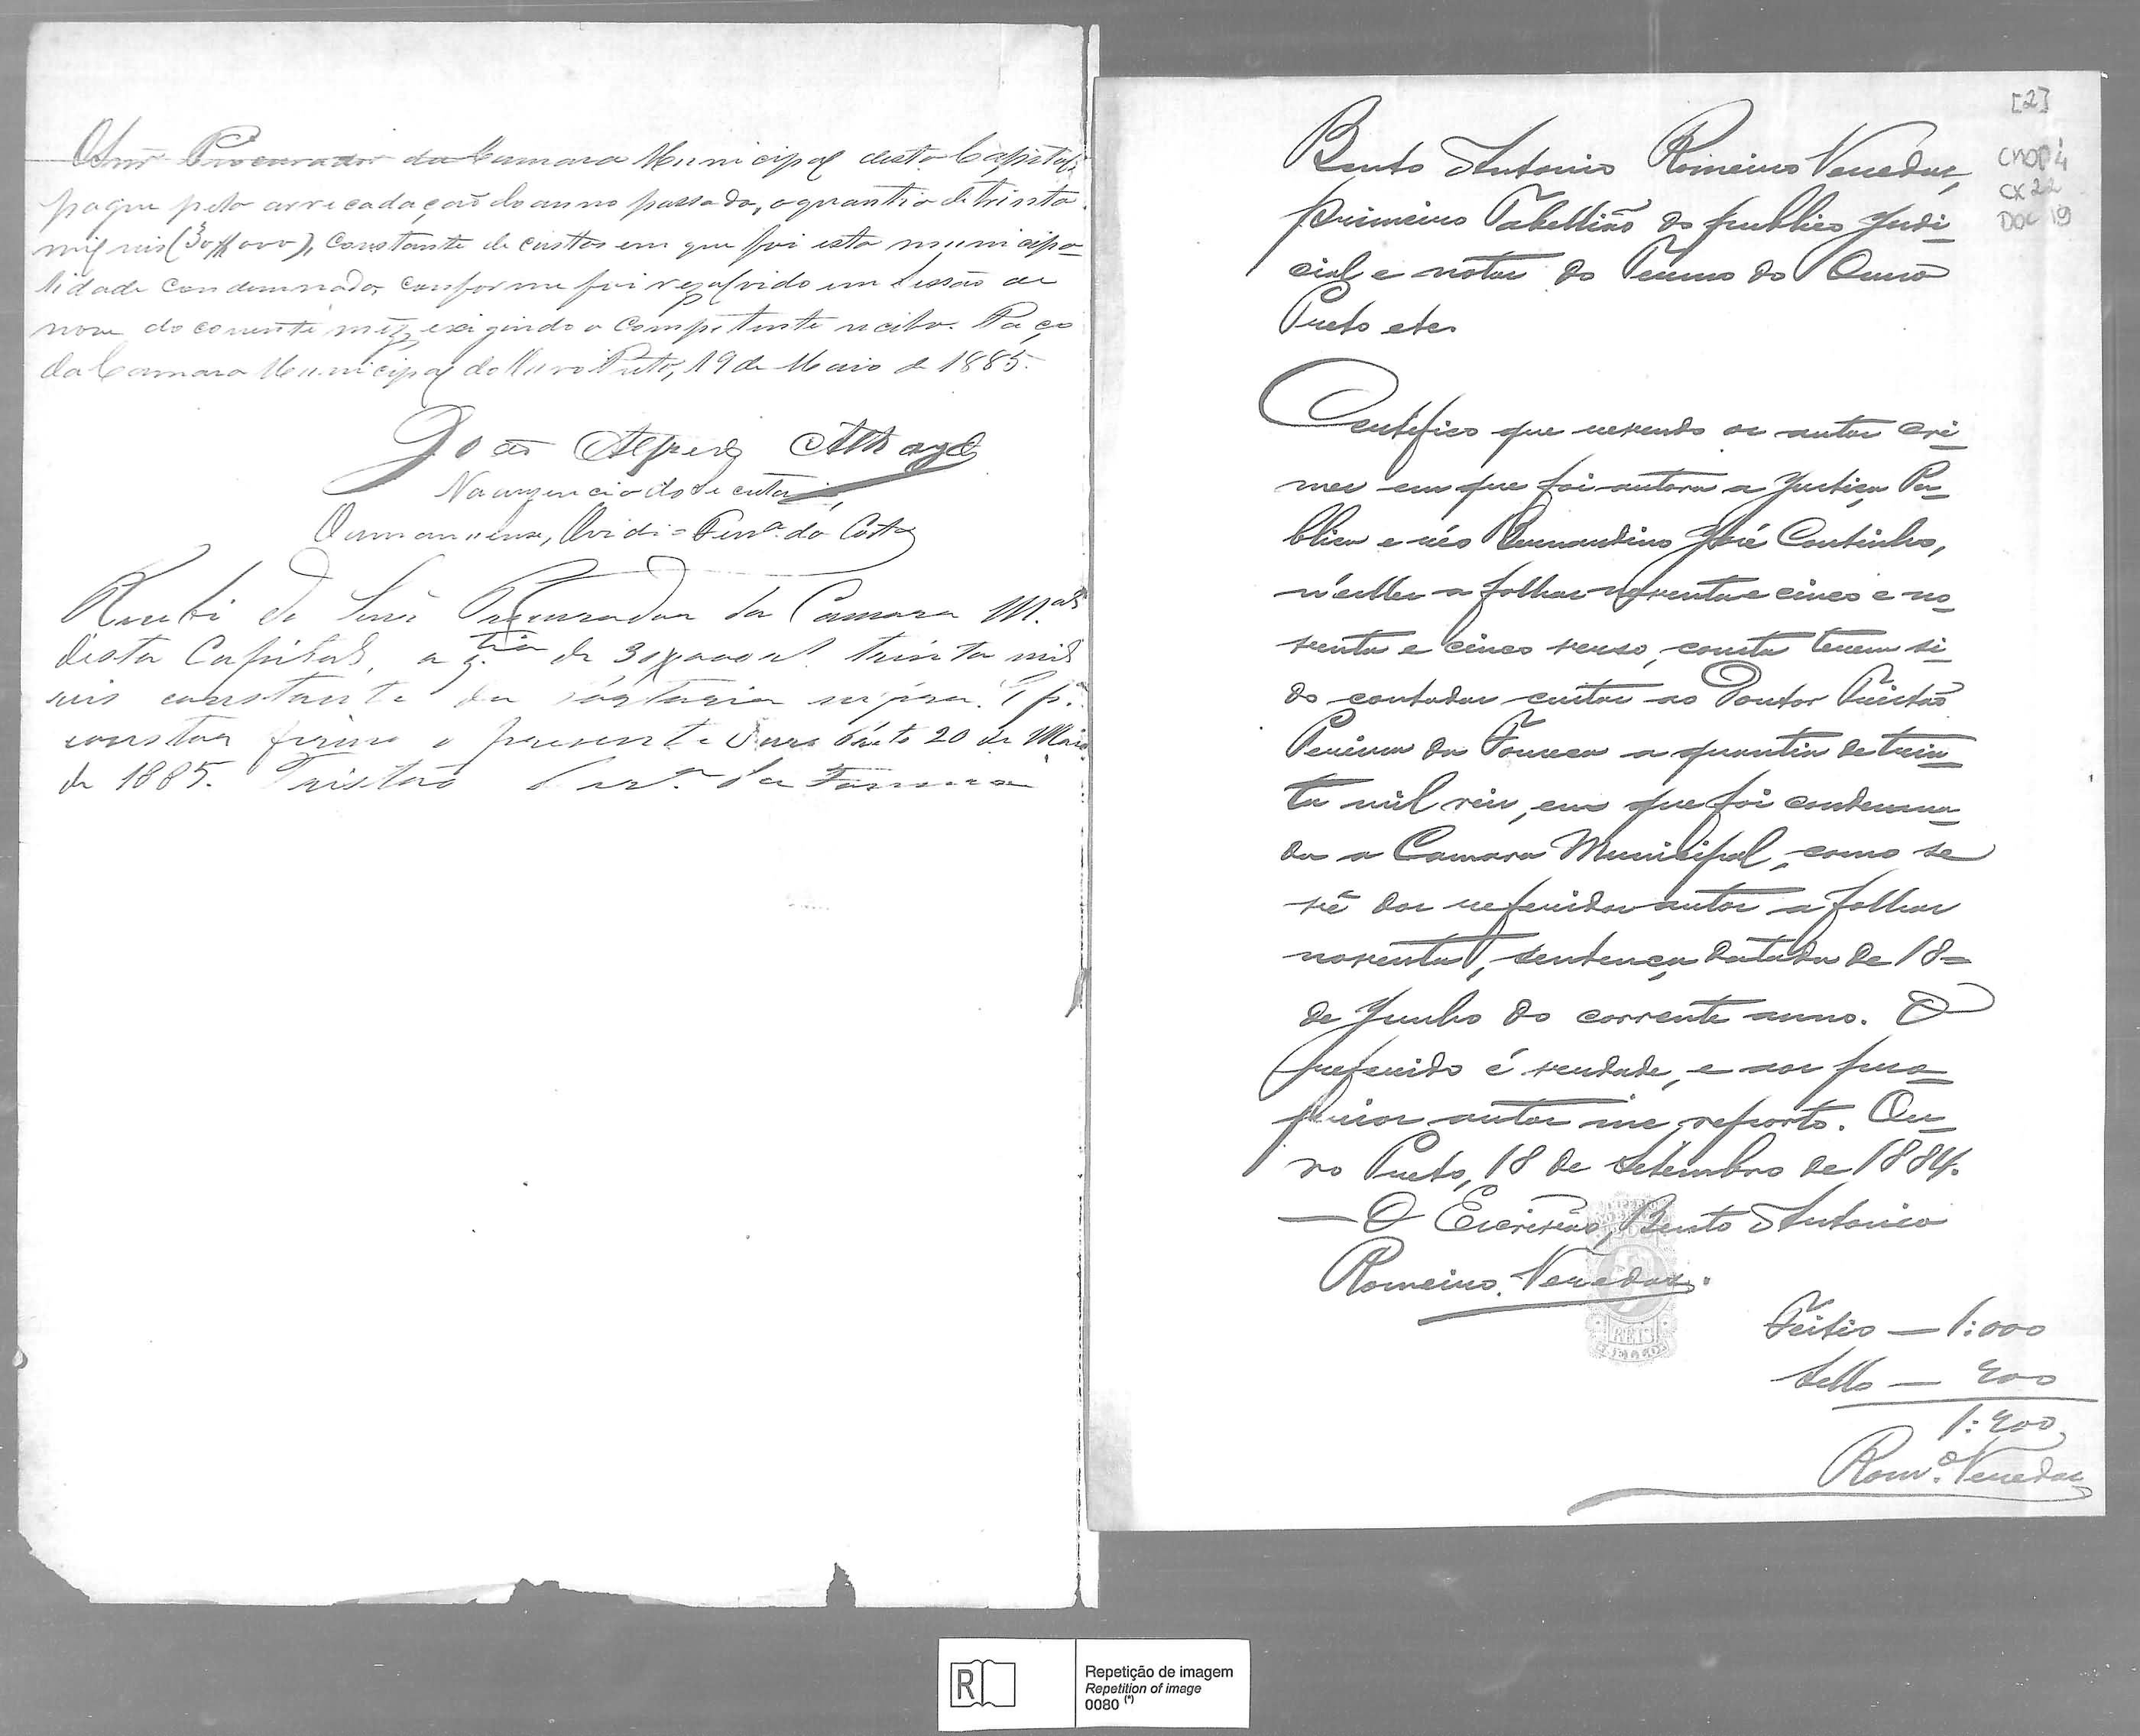 O Snr Procurador da Camara Municipal desta Capital,
pague pela arrecadação do anno passado, a quantia de trinta
mil reis (30$000), constante de custas em que foi esta municipa-
lidade condemnada, conforme foi resolvido em sessão de
nove do corrente mêz, exigindo o competente recibo. Paço
da Camara Municipal do Ouro Preto, 19 de Maio de 1885.
João Alfredo Athayde
Na auzencia do Secretario,
O amanuense, Ovidio Ferra. da Costa
Recebi do Senr. Procurador da Camara M.al
desta Capital, a q.tia de 30$000 rs. trinta mil
reis constante da portaria supra. E p.a
constar firmo o presente. Ouro Preto 20 de Maio
de 1885. Tristão Per.a da Fonseca
[2]
CMOP 4
CX 22
DOC 19
Bento Antonio Romeiro Veredas,
primeiro Tabellião do publico Judi-
cial e notas do Termo do Ouro
Preto etc.
Certifico que revendo os autos cri-
mes em que foi autora a Justiça Pu-
blica e réo Bernardino José Coutinho,
n'elles a folhas noventa e cinco e no-
venta e cinco verso, consta terem si-
do contadas custas ao Doutor Tristão
Pereira da Fonseca a quantia de trin-
ta mil reis, em que foi condemna-
da a Camara Municipal, como se
vê dos referidos autos a folhas
noventa, sentença datada de 18=
de Junho do corrente anno. O
referido é verdade, e aos pro-
prios autos me reporto. Ou-
ro Preto, 18 de Setembro de 1884.
— O Escrivão, Bento Antonio
Romeiro Veredas.
REIS
Feitio — 1:000
Sello — 200
1:200
Rom.o Veredas
R
Repetição de imagem
Repetition of image
0080 (*)